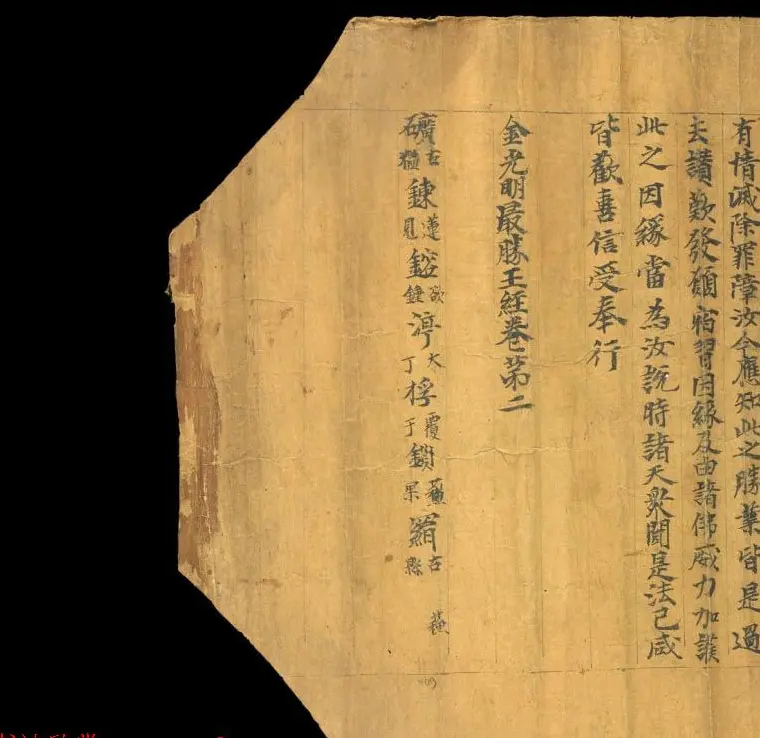 有情滅除罪障汝今應知此之勝業皆是過
去讚歎發願宿習因緣及由諸佛威力加護
此之因緣當為汝說時諸天眾聞是法已咸
皆歡喜信受奉行
金光明最勝王經卷第二
礦古猛鍊蓮見鎔欲鍾渟大丁桴覆于鎖蘓果羂古縣蘓